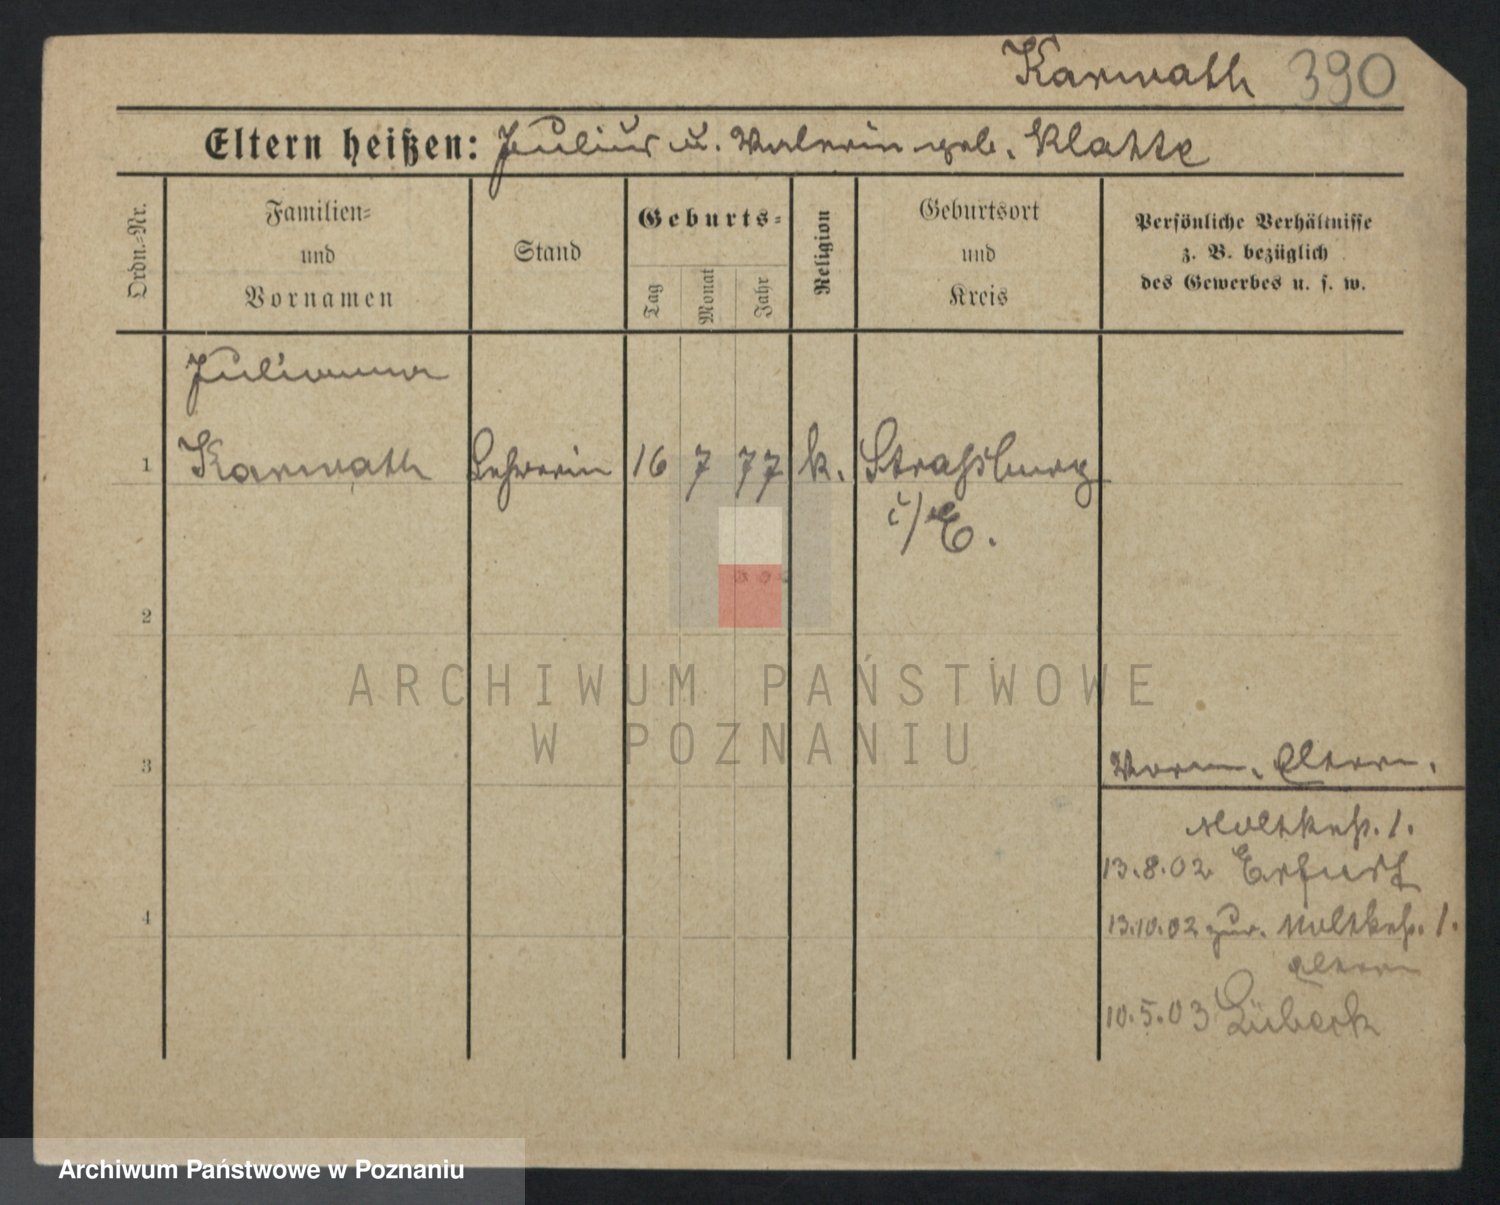 Karwath 390
Eltern heißen: Julius u. Valerie geb. Klatte
Ordn.-Nr.
Familien-
und
Vornamen
Stand
Geburts-
Tag
Monat
Jahr
Religion
Geburtsort
und
Kreis
Persönliche Verhältnisse
z. B. bezüglich
des Gewerbes u. s. w.
Julianna
1 Karwath Lehrerin 16 7 77 k. Straßburg
i/E.
2
ARCHIWUM PAŃSTWOWE
W POZNANIU
3
Eltern.
Moltkestr. 1.
13.8.02 Erfurt
4
13.10.02 zur. Moltkestr. 1.
Eltern
10.5.03 Lübeck
Archiwum Państwowe w Poznaniu